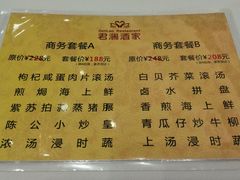 君澜酒家
商务套餐A
原价¥298元 套餐价¥188元
枸杞咸蛋肉片滚汤
煎焗海上鲜
紫苏拍蒜蒸猪服
陈公小炒皇
浓汤浸时蔬
商务套餐B
原价¥248元 套餐价¥208元
白贝芥菜滚汤
卤水拼盘
香煎海上鲜
青瓜仔炒牛柳
上汤浸时蔬